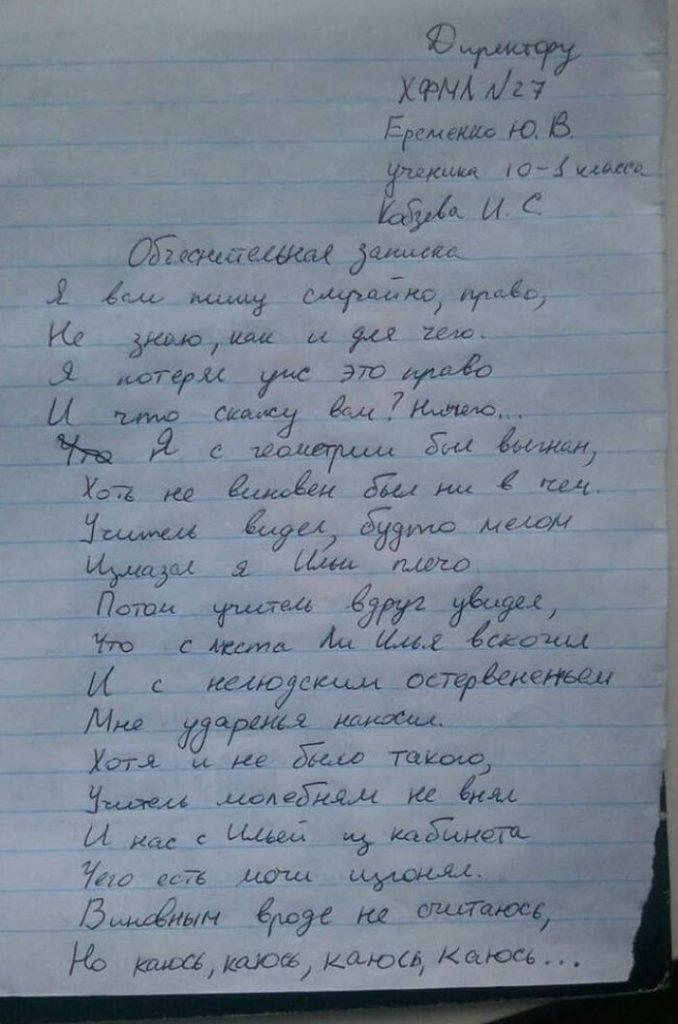 Директору
ХФМЛ №27
Еременко Ю. В.
ученика 10-1 класса
Кобзева И. С
Объеснительная записка
Я вам пишу случайно, право,
Не знаю, как и для чего.
Я потерял уис это право
И что скажу вам? Ничего...
Что Я с геометрии был выгнан,
Хоть не виновен был ни в чем.
Учитель видел, будто мелом
Измазал я Ильи плечо.
Потом учитель вдруг увидел,
Что с места Ли Илья вскочил
И с нелюдским остервененьем
Мне ударенья наносил.
Хотя и не было такого,
Учитель молебням не внял
И нас с Ильей из кабинета
Чего есть мочи изгонял.
Виновным вроде не считаюсь,
Но каюсь, каюсь, каюсь, каюсь...